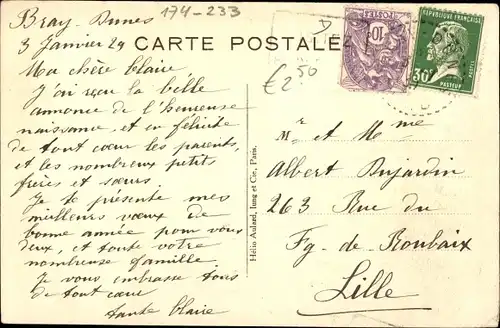 Bray-Dunes
174-233
3 Janvier 29
CARTE POSTALE
Ma chère Claire
J'ai reçu la belle
annonce de l'heureuse
naissance, et en félicite
de tout cœur les parents,
et les nombreux petits
frères et sœurs
Je te présente mes
meilleurs vœux de
bonne année pour vous
deux, et toute votre
nombreuse famille
Je vous embrasse tous
de tout cœur
tante Claire
Hélio Aulard, Iung et Cie, Paris.
€2 50
POSTES
10c
REPUBLIQUE FRANÇAISE
30c
POSTES
PASTEUR
Mr et Mme
Albert Dujardin
263 Rue du
Fg-de-Roubaix
Lille